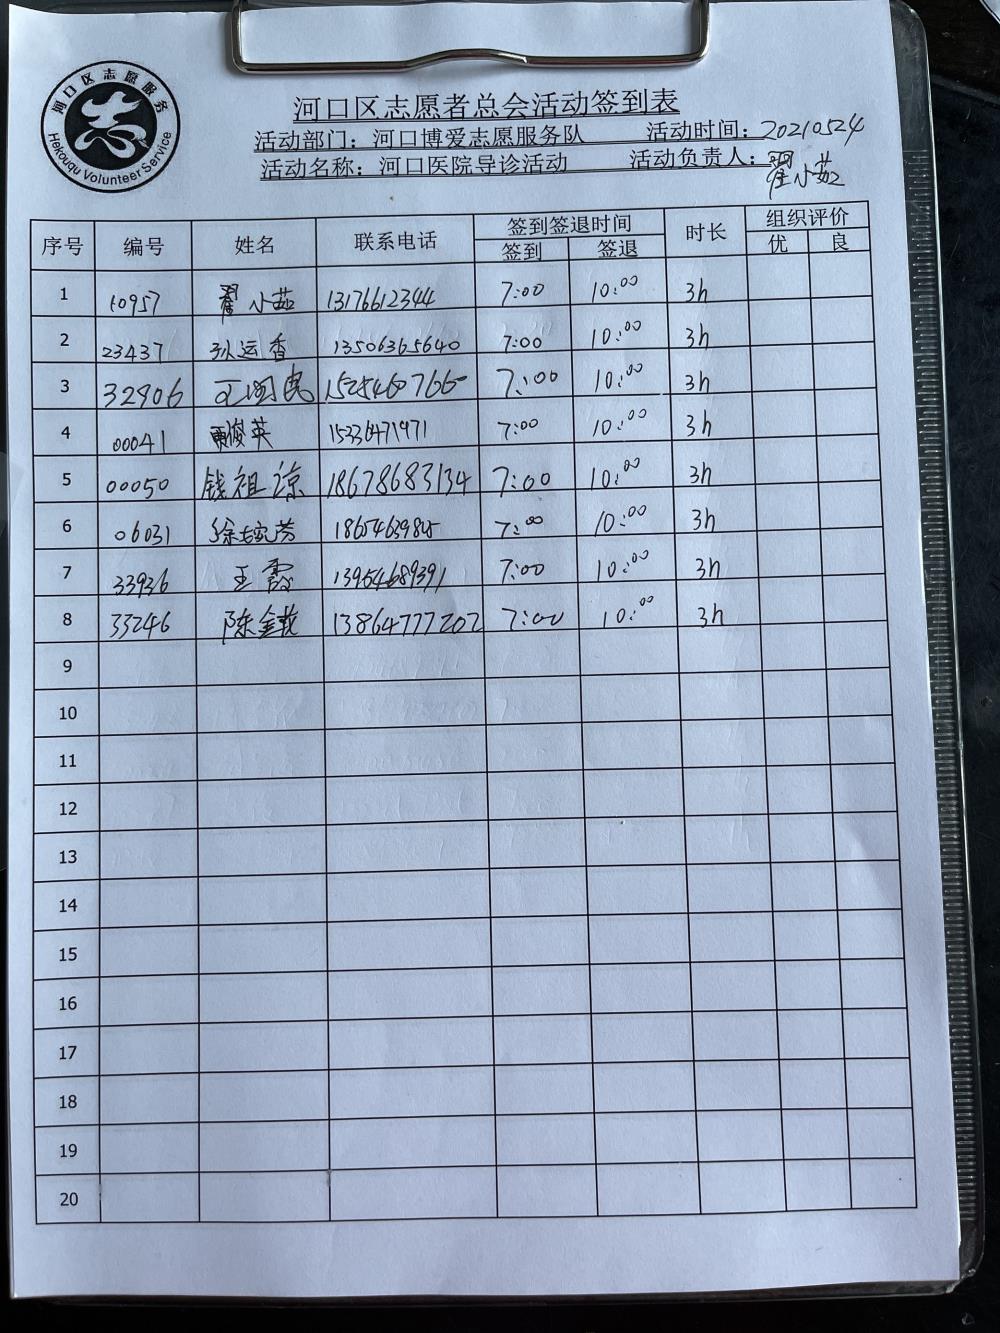 河口区志愿服务
Hekouqu Volunteer Service
河口区志愿者总会活动签到表
活动部门：河口博爱志愿服务队 活动时间：20210524
活动名称：河口医院导诊活动 活动负责人：翟小茹
序号 编号 姓名 联系电话 签到签退时间 时长 组织评价
签到 签退 优 良
1 10957 翟小茹 13176612344 7:00 10:00 3h
2 23437 孙运香 13506365640 7:00 10:00 3h
3 32906 7:00 10:00 3h
4 00041 俊英 15336471971 7:00 10:00 3h
5 00050 钱祖凉 18678683134 7:00 10:00 3h
6 06031 7:00 10:00 3h
7 33936 王霞 13954689391 7:00 10:00 3h
8 33246 陈金 13864777202 7:00 10:00 3h
9
10
11
12
13
14
15
16
17
18
19
20